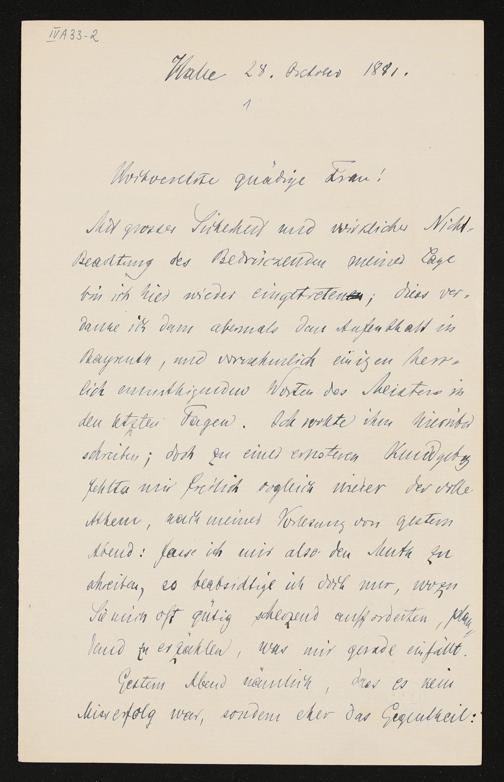 IVA33-2
Halle 28. October 1881.
1
Hochverehrte gnädige Frau!
Mit grosser Sicherheit und wirklicher Nicht-
Beachtung des Bedrückenden meiner Lage
bin ich hier wieder eingetreten; dies ver-
danke ich dem abermals dem Aufenthalt in
Bayreuth, und vornehmlich einigen herr-
lich ermuthigenden Worten des Meisters in
den letzten Tagen. Ich wollte ihm hierüber
schreiben; doch zu einer ernsteren Kundgebg
fehlte mir freilich sogleich wieder der volle
Athem, nach meiner Vorlesung von gestern
Abend: fasse ich mir also den Muth zu
schreiben, so beabsichtige ich doch nur, wozu
Sie mich oft gütig scherzend aufforderten, plau-
dernd zu erzählen, was mir gerade einfällt.
Gestern Abend nämlich, dass es kein
Misserfolg war, sondern eher das Gegentheil: